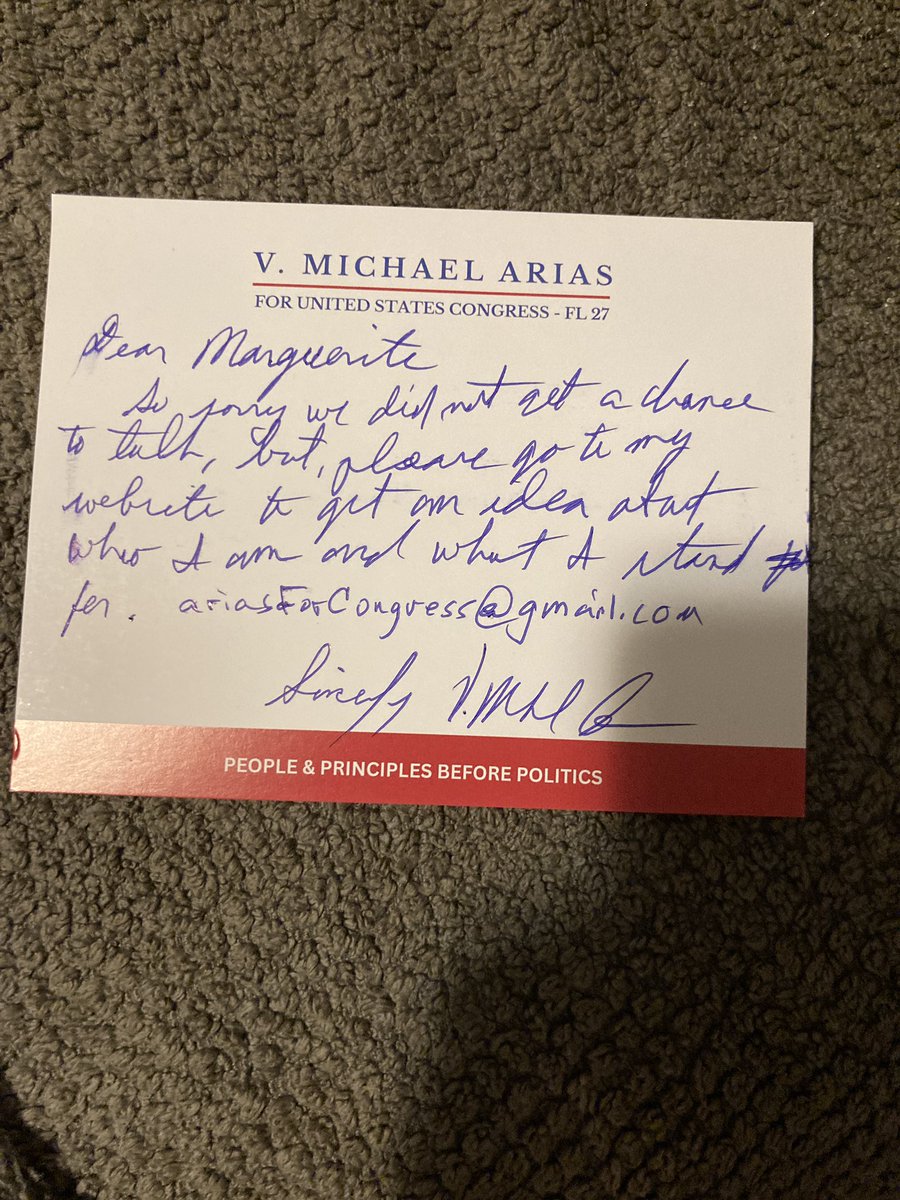 V. MICHAEL ARIAS
FOR UNITED STATES CONGRESS - FL 27
Dear Marguerite
So sorry we did not get a chance
to talk, but, please go to my
website to get an idea about
who I am and what I stand
for. ariasForCongress@gmail.com
Sincerely V. M
PEOPLE & PRINCIPLES BEFORE POLITICS